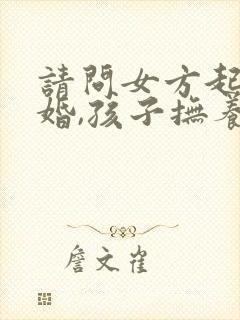 請問女方起
婚,孩子撫養
詹文雀